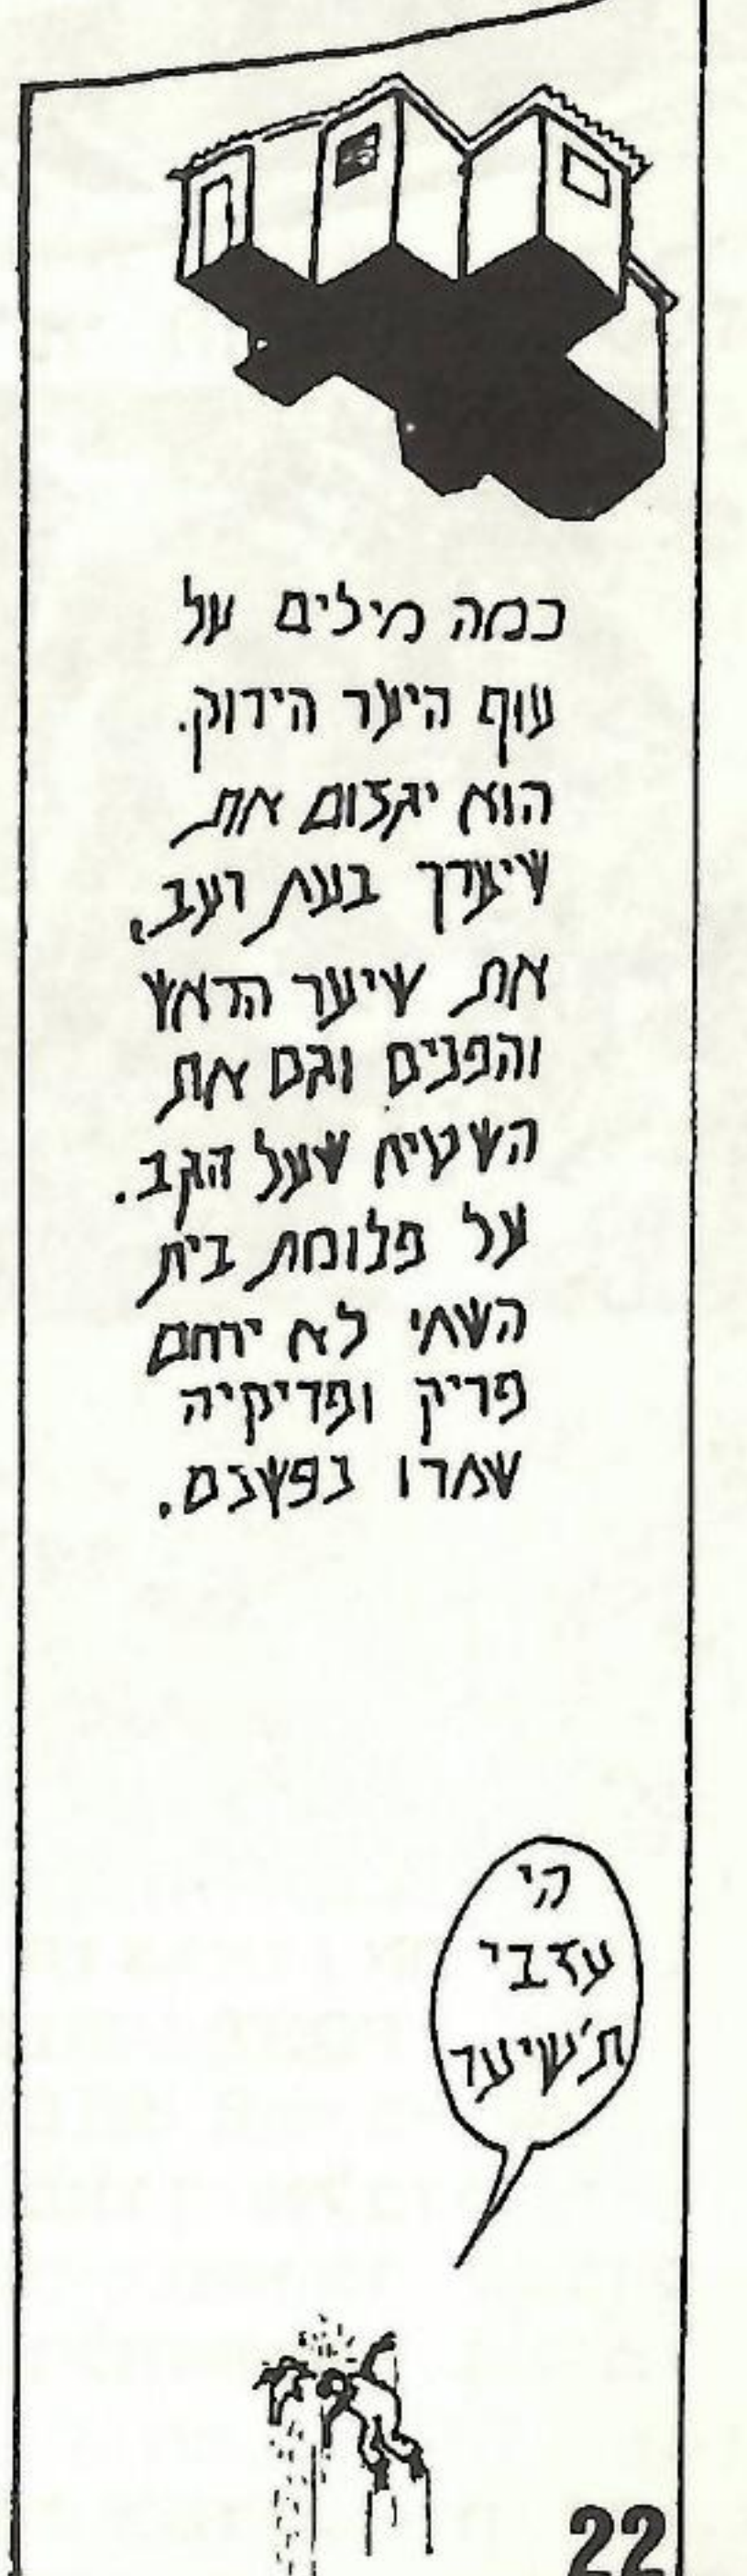 כמה מילים על
עוף היער הירוק.
הוא יגזום את
שיערך בעת רעב,
את שיער הראש
והפנים וגם את
השטיח שעל הגב.
על פלומת בית
השחי לא ירחם
פריק ופריקיה
שמרו נפשכם.
הי
עזבי
ת'שיער
22